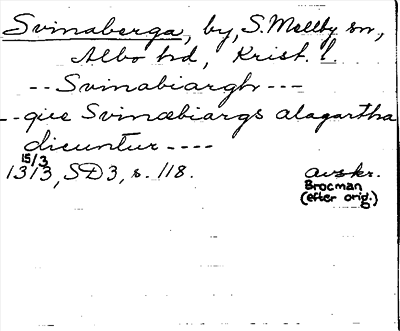 Svinaberga, by, S. Mellby sn,
Albo hd, Krist. l
-- Svinabiargh ---
-- que Svinæbiargs alagartha
dicuntur ----
15/3
1313, SD3, s. 118. avskr.
Brocman
(efter orig.)